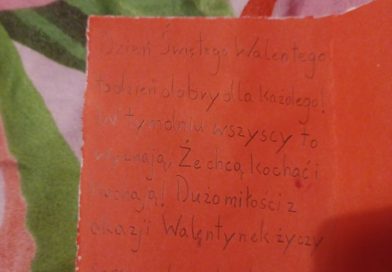 Dzień Świętego Walentego
to dzień dobry dla każdego!
W tym dniu wszyscy to
wyznają, Że chcą, kochać i
kochają! Dużo miłości z
okazji Walentynek życzy